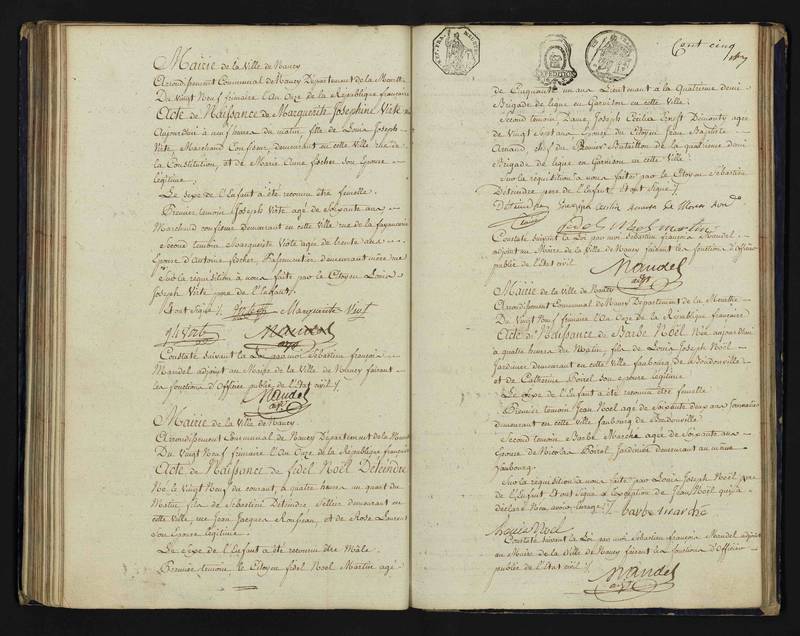 Mairie de la Ville de Nancy
Arrondissement Communal de Nancy Departement de la Meurthe
Du Vingt Neuf frimaire l'An Onze de la République française
Acte de Naissance de Marguerite Josephine
Aujourd'hui à neuf heures du matin, fille de Louis Joseph
Marchand Confiseur, demeurant en cette Ville rue de
la Constitution, et de Marie Anne fischer son Epouse
légitime
Le sexe de l'Enfant a été reconnu être femelle.
Premier temoin Joseph agé de soixante ans
Marchand confiseur demeurant en cette Ville rue de la fayancerie
Second temoin Marguerite agée de trente ans
Epouse d'Antoine fischer, demeurant même rue
Sur la réquisition à nous faite par le Citoyen Louis
Joseph père de l'Enfant
Et ont Signé Marguerite
Mandel
adjt
Constaté suivant la Loi par moi Sébastien françois
Mandel adjoint au Maire de la Ville de Nancy faisant
les fonctions d'Officier public de l'Etat civil
Mandel
adjt
Mairie de la Ville de Nancy.
Arrondissement Communal de Nancy Département de la Meurthe
Du Vingt Neuf frimaire l'An Onze de la République française
Acte de Naissance de fidel Noël Deteindre
Né le Vingt Neuf du courant, à quatre heures un quart du
Matin, fils de Sébastien Deteindre, Sellier demeurant en
cette Ville, rue Jean Jacques Rousseau, et de Rose Laurent
son Epouse légitime.
Le Sexe de l'Enfant a été reconnu être Mâle.
Premier temoin le Citoyen fidel Noel Martin agé
Cent cinq
de Cinquante un ans Lieutenant à la Quatrieme demi
Brigade de ligne en Garnison en cette Ville.
Second temoin Dame Joseph Cécilia Demonty agée
de Vingt Sept ans Epouse du Citoyen Jean Baptiste
Arnaud, chef du Premier Bataillon de la quatrieme demi
Brigade de ligne en Garnison en cette Ville.
Sur la réquisition à nous faite par le Citoyen Sébastien
Deteindre, père de l'Enfant Et ont Signé
fidel Noel martin
Constaté suivant la Loi par moi Sébastien françois Mandel
adjoint au Maire de la Ville de Nancy faisant les fonctions d'Officier
public de l'Etat civil
Mandel
adjt
Mairie de la Ville de Nancy
Arrondissement Communal de Nancy Département de la Meurthe
Du Vingt Neuf frimaire l'An Onze de la République française
Acte de Naissance de Barbe Noël Née aujourd'hui
à quatre heures du Matin, fille de Louis Joseph Noël
Jardinier demeurant en cette Ville faubourg de Boudonville
et de Catherine Poirel son epouse légitime
Le Sexe de l'Enfant a été reconnu être femelle
Premier temoin Jean Noël agé de Soixante deux ans Journalier
demeurant en cette Ville faubourg de Boudonville
Second temoin Barbe Marche agée de Soixante ans
Epouse de Nicolas Poirel Jardinier demeurant au même
faubourg.
Sur la réquisition à nous faite par Louis Joseph Noël père
de l'Enfant Et ont Signé à l'exception de Jean Noël qui a
déclaré l'usage barbe marche
Louis Noel
Constaté suivant la Loi par moi Sébastien françois Mandel adjoint
au Maire de la Ville de Nancy faisant les fonctions d'Officier
public de l'Etat civil
Mandel
adjt